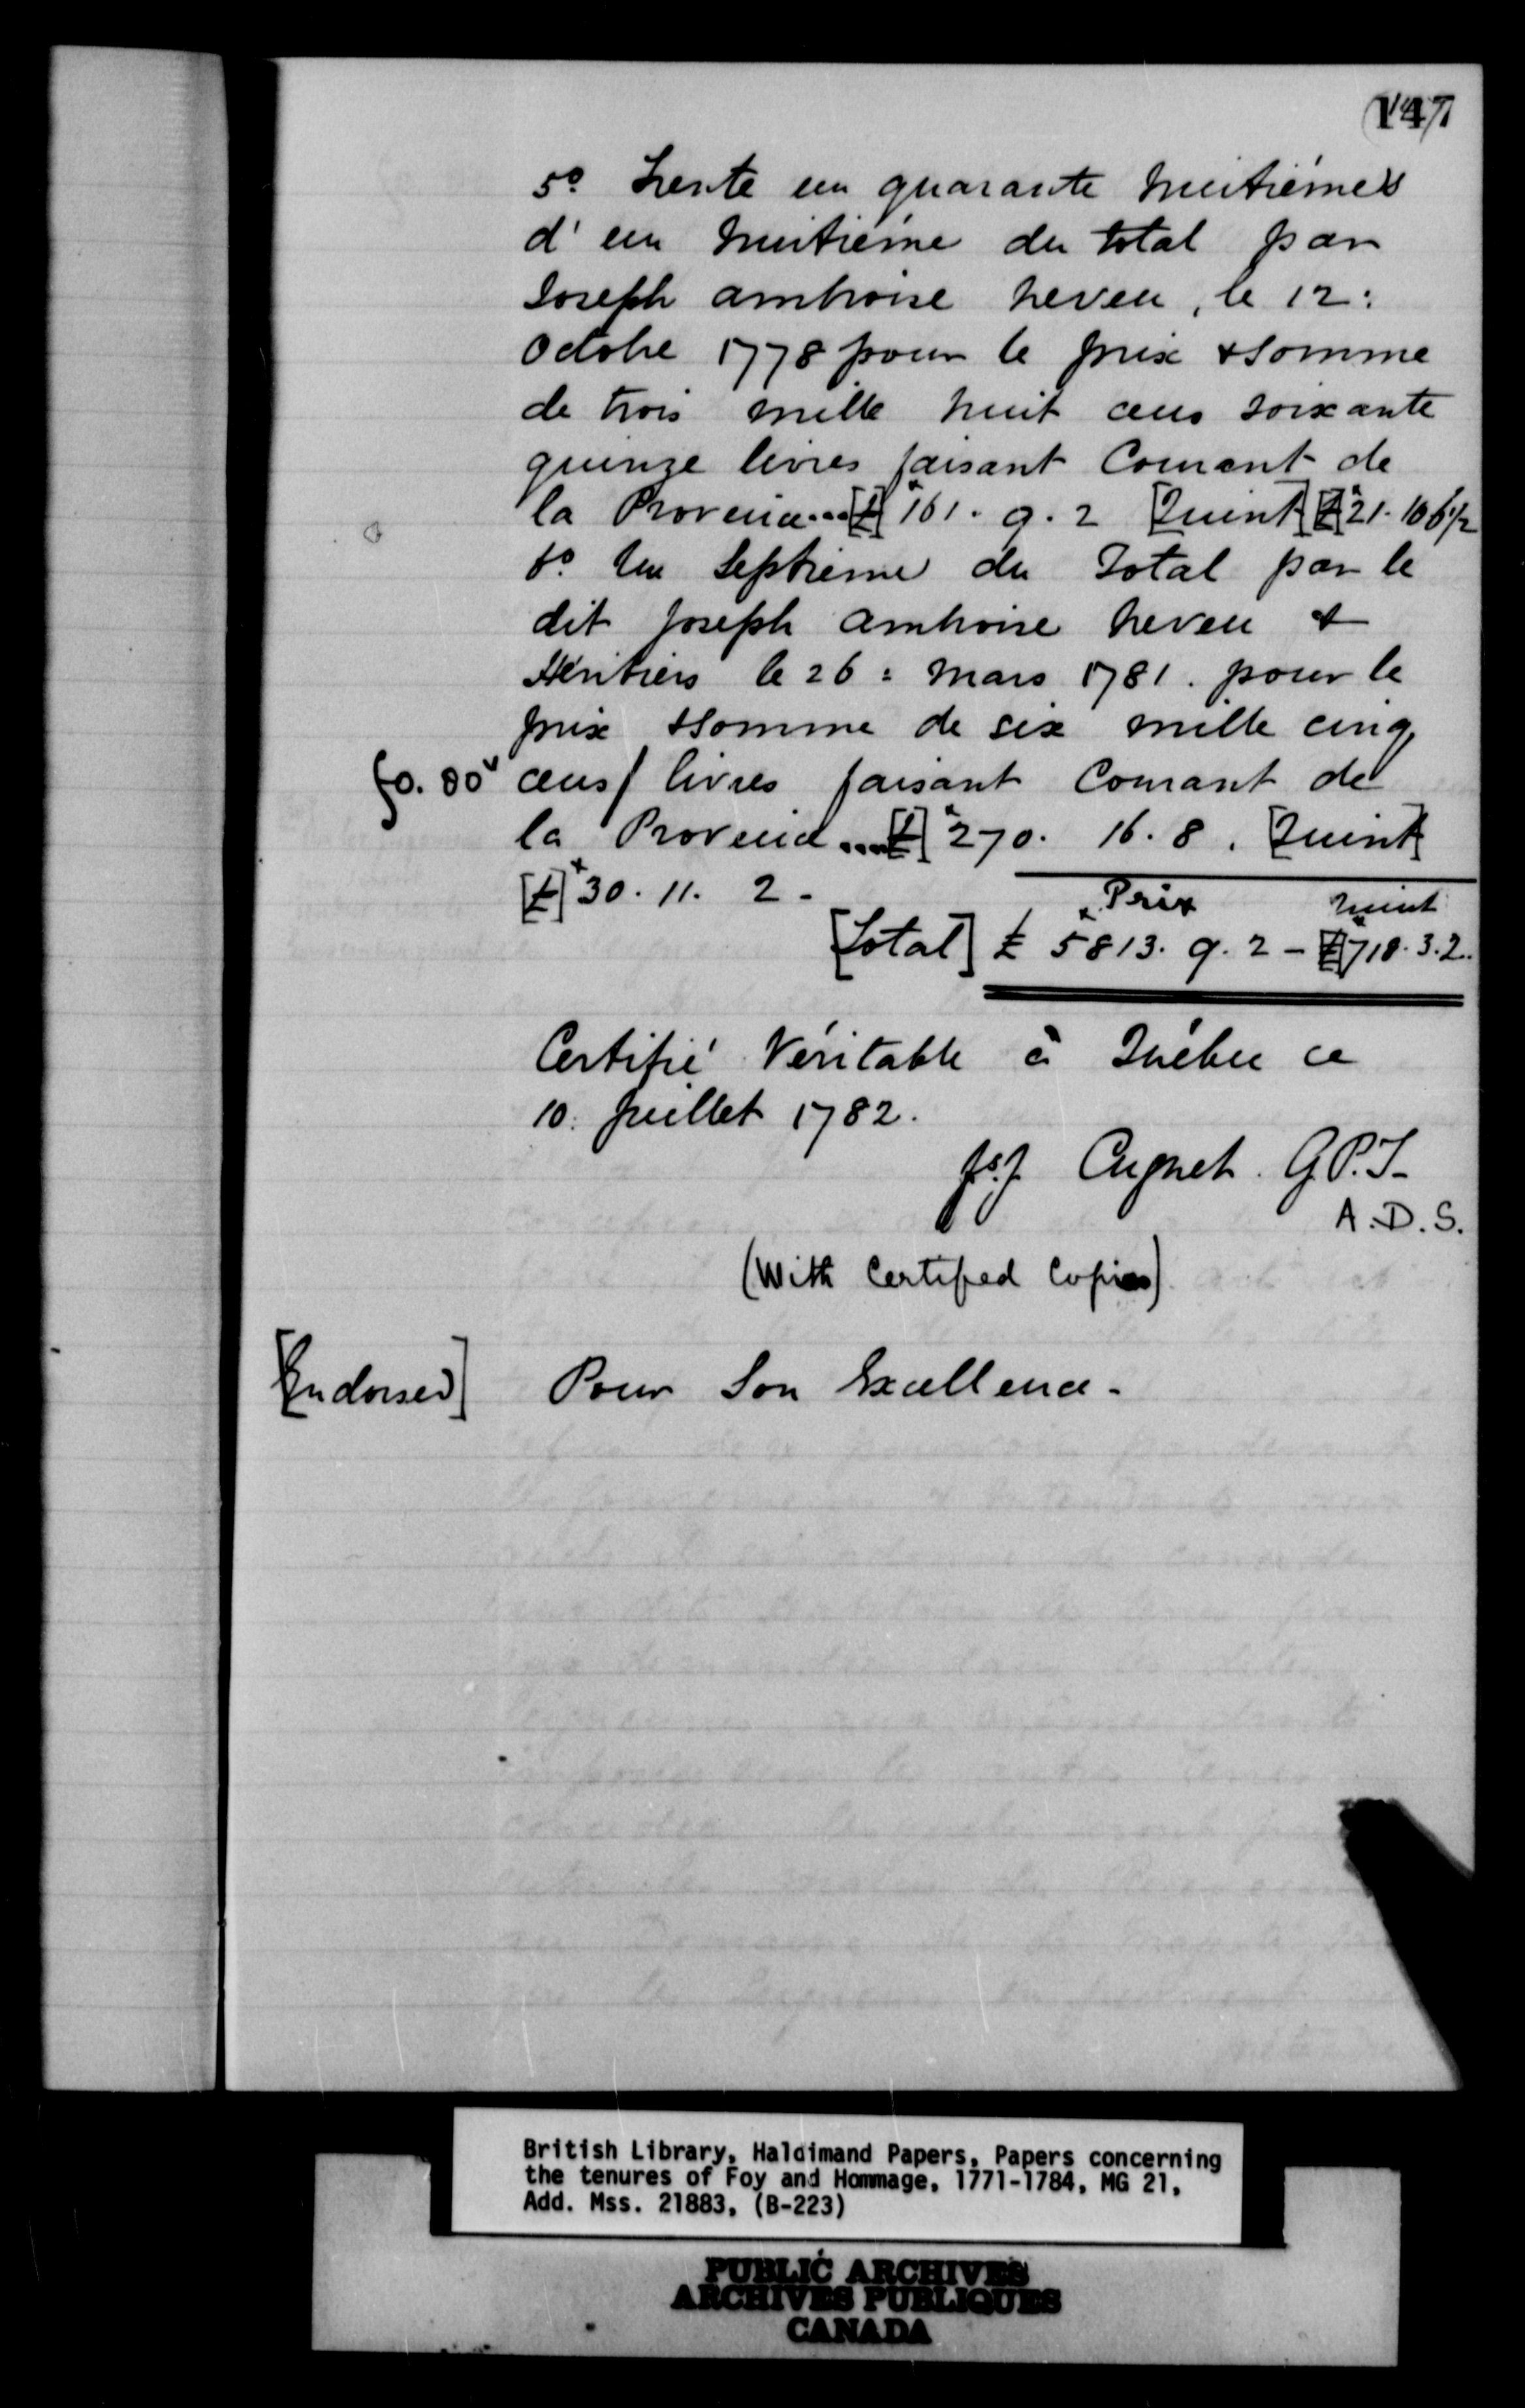 147
5o. Trente un quarante huitièmes
d'un huitième du total par
Joseph Ambroise neveu, le 12:
Octobre 1778 pour le prix & Somme
de trois mille huit cens soixante
quinze livres faisant Courant de
la Province...[£] 161. 9. 2 [Quint] [£] 21. 10 6 1/2
6o. Un Septième du Total par le
dit Joseph Ambroise neveu &
Héritiers le 26: Mars 1781. pour le
prix & Somme de six mille cinq
fo. 80v cens/ livres faisant Courant de
la Province....[£] 270. 16. 8. [Quint]
[£] 30. 11. 2 -
Prix quint
[Total] £ 5813. 9. 2 - [£] 718. 3. 2.
Certifié Véritable à Québec ce
10: Juillet 1782.
fs. J. Cugnet. G.P.T.
A.D.S.
(With Certified Copies)
[Endorsed] Pour Son Excellence -
British Library, Haldimand Papers, Papers concerning
the tenures of Foy and Hommage, 1771-1784, MG 21,
Add. Mss. 21883, (B-223)
PUBLIC ARCHIVES
ARCHIVES PUBLIQUES
CANADA